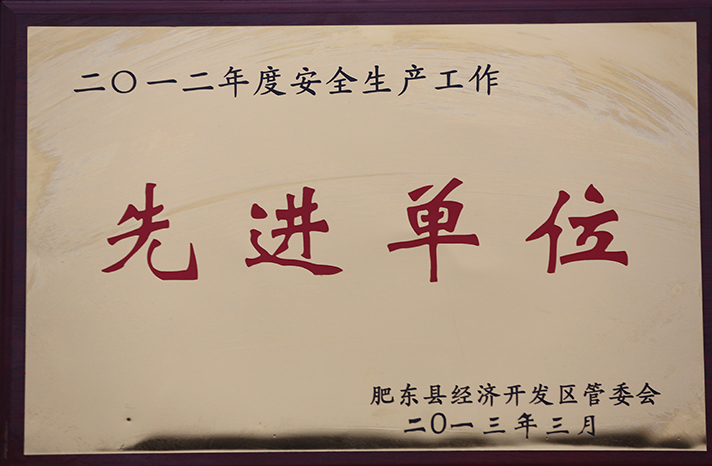 二〇一二年度安全生产工作
先进单位
肥东县经济开发区管委会
二〇一三年三月